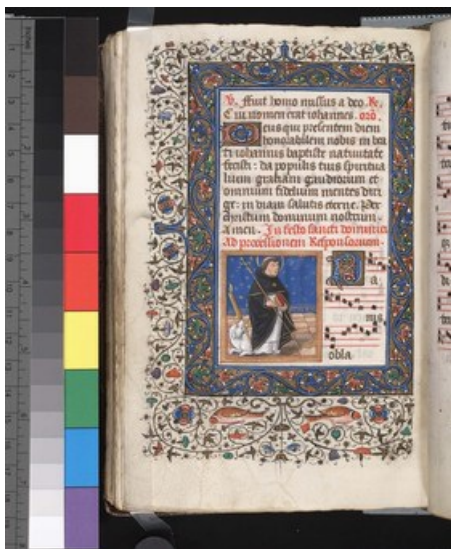 V. ffuit homo missus a deo. Re.
Cui nomen erat iohannes. orō.
Deus qui presentem diem
honorabilem nobis in bea
ti iohannis baptiste natiuitate
fecisti: da populis tuis spiritua
lium gratiam gaudiorum et
omnium fidelium mentes diri
ge: in viam salutis eterne. Per
christum dominum nostrum.
Amen. In festo sancti dominici
Ad processionem Responsorium.
a
nis
obla